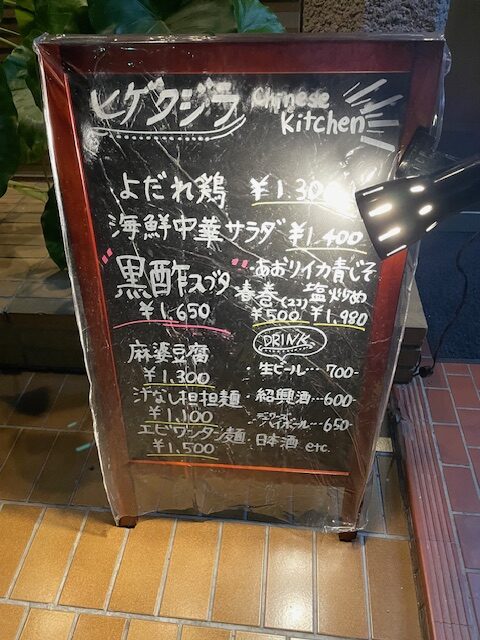 ヒゲクジラ Chinese Kitchen
よだれ鶏 ¥1.300
海鮮中華サラダ ¥1,400
"黒酢スブタ
¥1,650
"あおりイカ青じそ
春巻(2コ) 塩炒め
¥500 ¥1,980
麻婆豆腐
¥1.300
汁なし担担麺
¥1,100
エビワンタン麺
¥1,500
DRINK
・生ビール…700-
・紹興酒…600-
ハイボール…650-
・日本酒 etc.